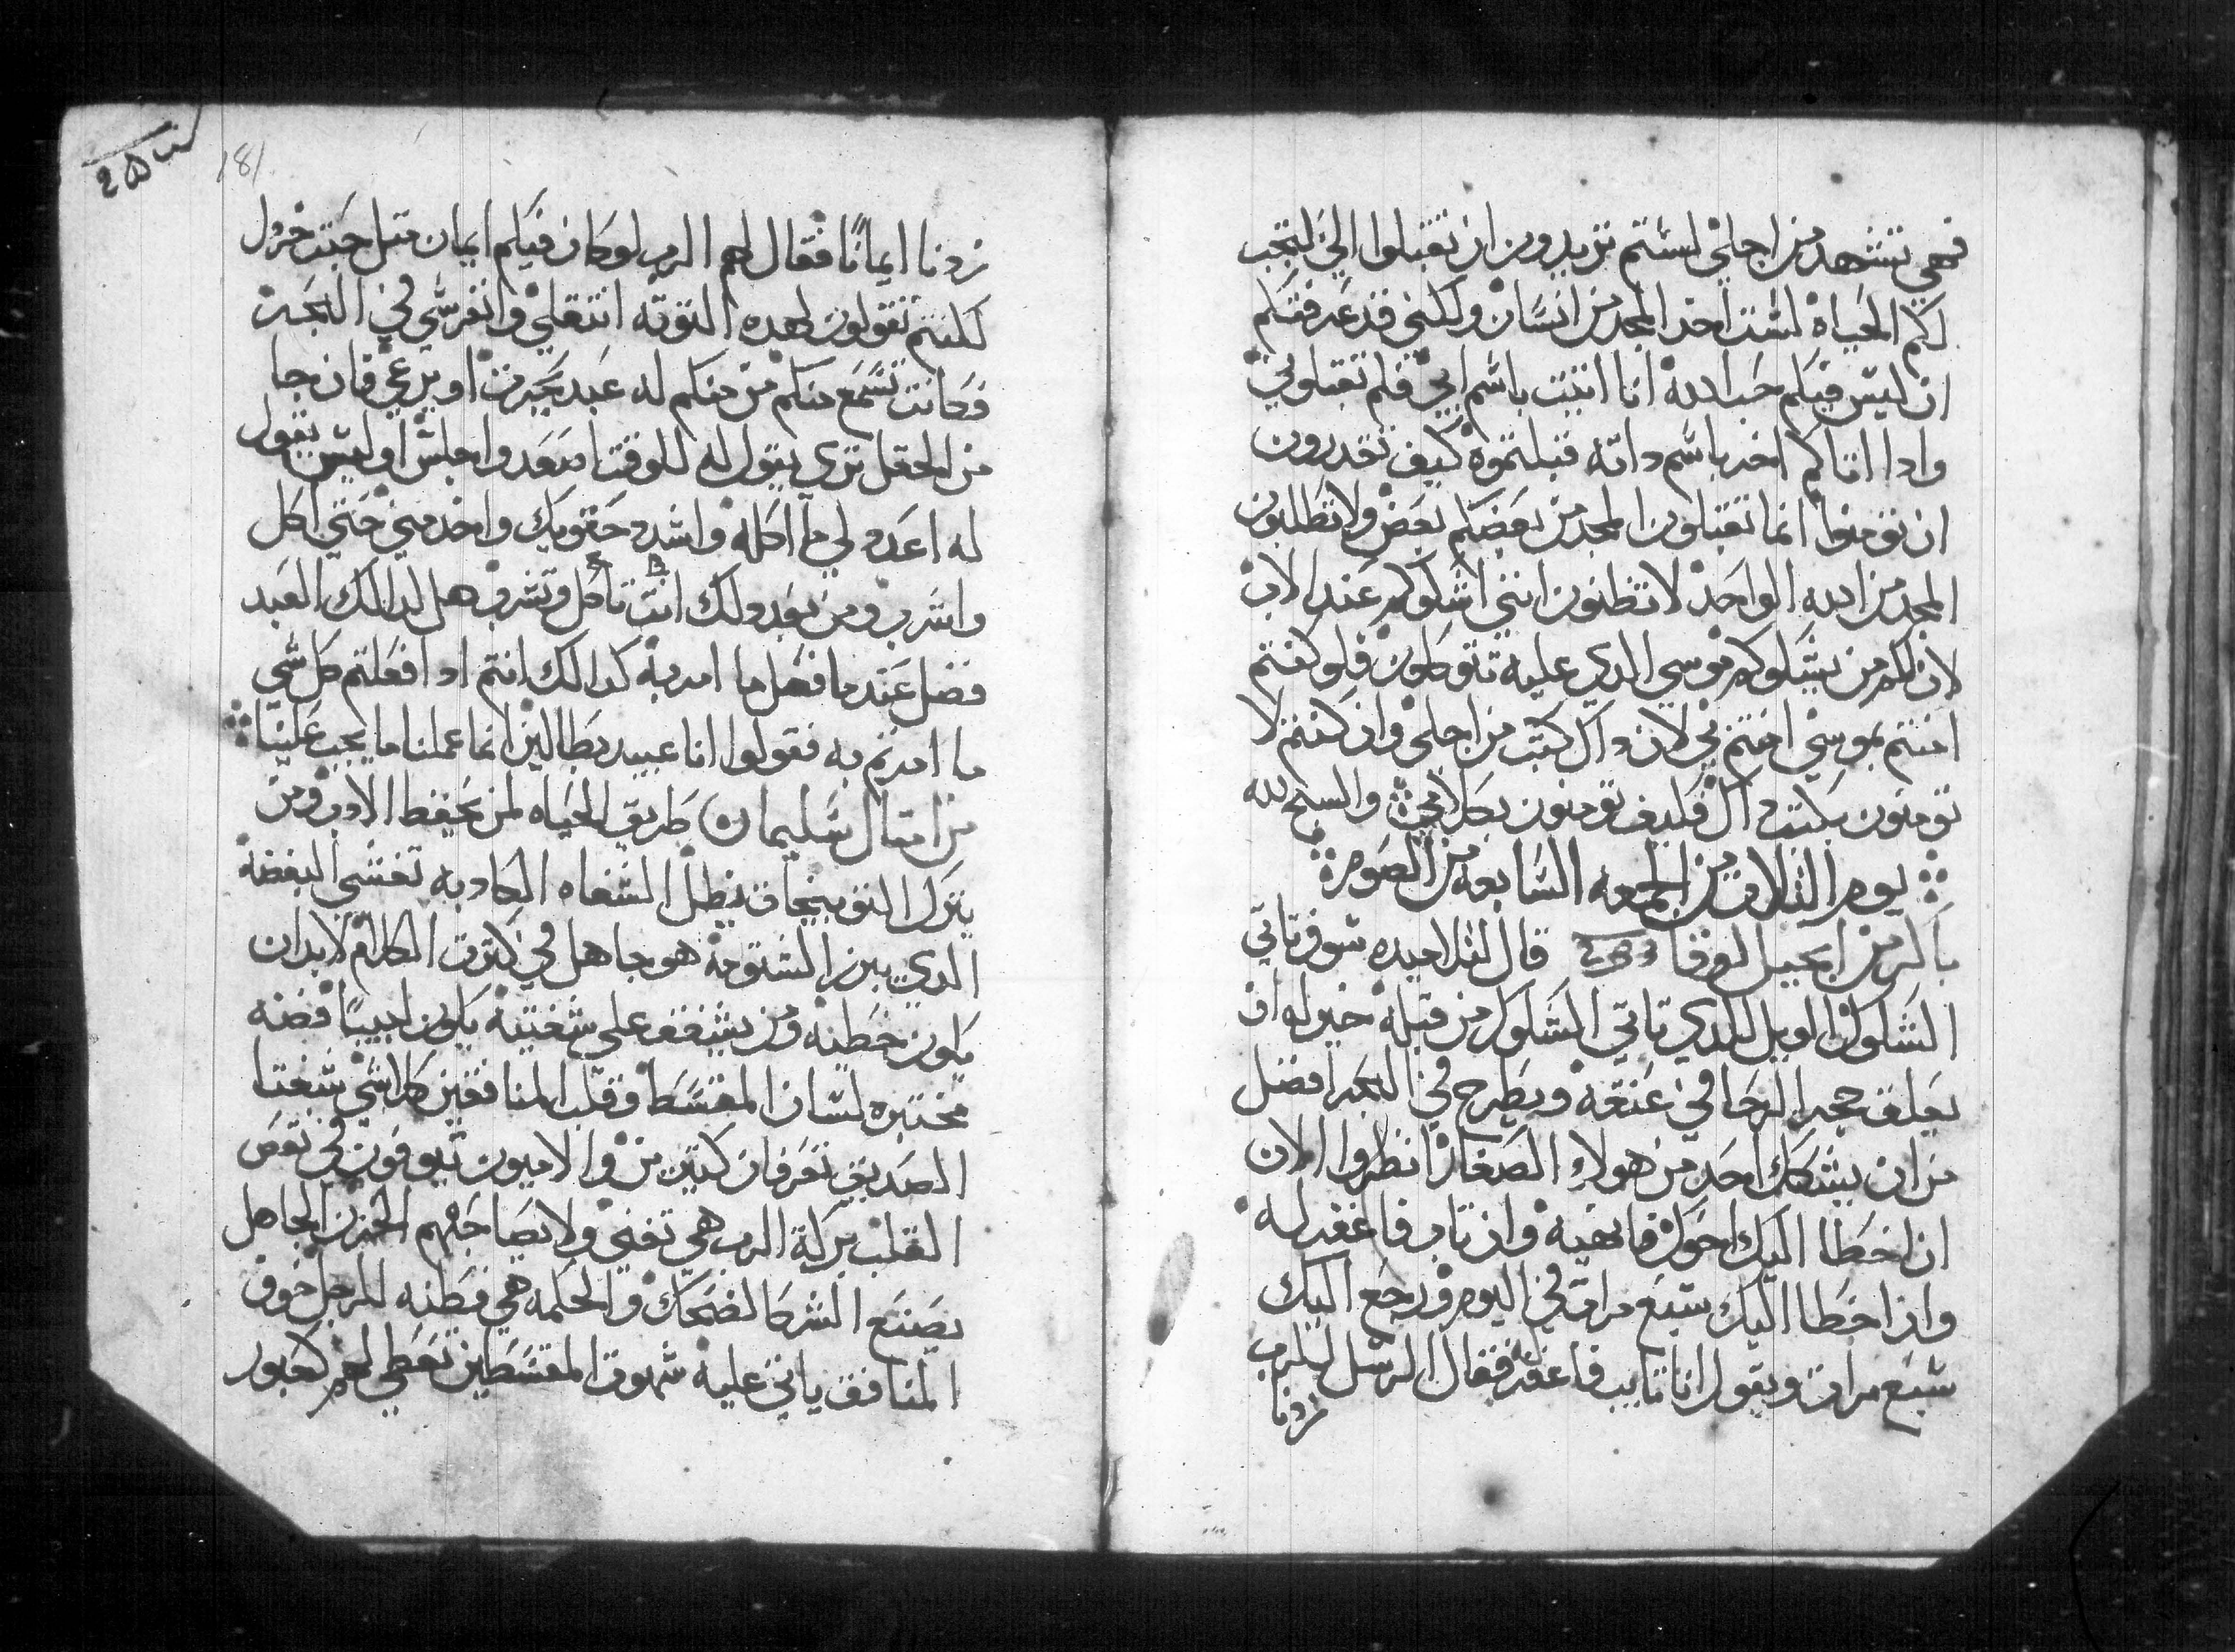 فهي تشهد من اجلي لستم تريدون ان تقبلوا الي لتجب
لكم الحياه لست اخد المجد من انسان ولكني قد عرفتكم
ان ليس فيكم حب الله انا اتيت باسم ابي فلم تقبلوني
وادا اتاكم اخر باسم داته قبلتموه كيف تقدرون
ان تومنوا انما تقبلون المجد من بعضكم بعض ولا تطلبون
المجد من الله الواحد لا تظنون انني اشكوكم عند الاب
لان لكم من يشكوكم موسي الدي عليه تتوكلون فلو كنتم
امنتم بموسي امنتم بي لان داك كتب من اجلي وان كنتم لا
تومنون بكتب داك فكيف تومنون بكلامي والسبح لله
يوم التلات من الجمعه السابعه من الصوم
باكر من انجيل لوقا قال لتلاميده سوف تاتي
الشكوك الويل للدي تاتي الشكوك من قبله خير له ان
يعلق حجر الرحا في عنقه ويطرح في البحر افضل
من ان يشكك احد من هولاء الصغار انظروا الان
ان اخطا اليك اخوك فانهيه وان تاب فاغفر له
وان اخطا اليك سبع مرات في اليوم ورجع اليك
سبع مرات ويقول انا تايب فاغفر له فقال الرسل للرب
زدنا
181
زدنا ايمانا فقال لهم الرب لو كان فيكم ايمان متل حبت خردل
لكنتم تقولون لهده التوته انتقلي وانغرسي في البحر
فكانت تسمع منكم من منكم له عبد يحرت او يرعي فان جا
من الحقل تري يقول له للوقت اصعد واجلس او ليس يقول
له اعد لي ما اكله واشدد حقويك واخدمني حتي اكل
واشرب ومن بعد دلك انت تاكل وتشرب هل لدالك العبد
فضل عندما فعل ما امر به كدالك انتم ادا فعلتم كل شي
ما امرتم به فقولوا انا عبيد بطالين انما عملنا ما يجب علينا
من امتال سليمان طريق الحياه لمن يحفظ الادب ومن
يترك التوبيخ تظل الشفاه الكادبه تغشي البغضه
الدي يبرز الشتومه هو جاهل في كترت الكلام لابد ان
يكون خطيه ومن يشفق علي شفتيه يكون لبيبا فضه
مختبره لسان المقسط وقلب المنافقين كلاشي شفتا
الصديق تعرفان كتير من والاميون يتوفون في نقص
القلب بركة الرب هي تغني ولا يصاحبهم الحزن الجاهل
يصنع الشر كالضحك والحكمه هي فطنه للرجل خوف
المنافق ياتي عليه شهوت المقسطين تعطي لهم كعبور